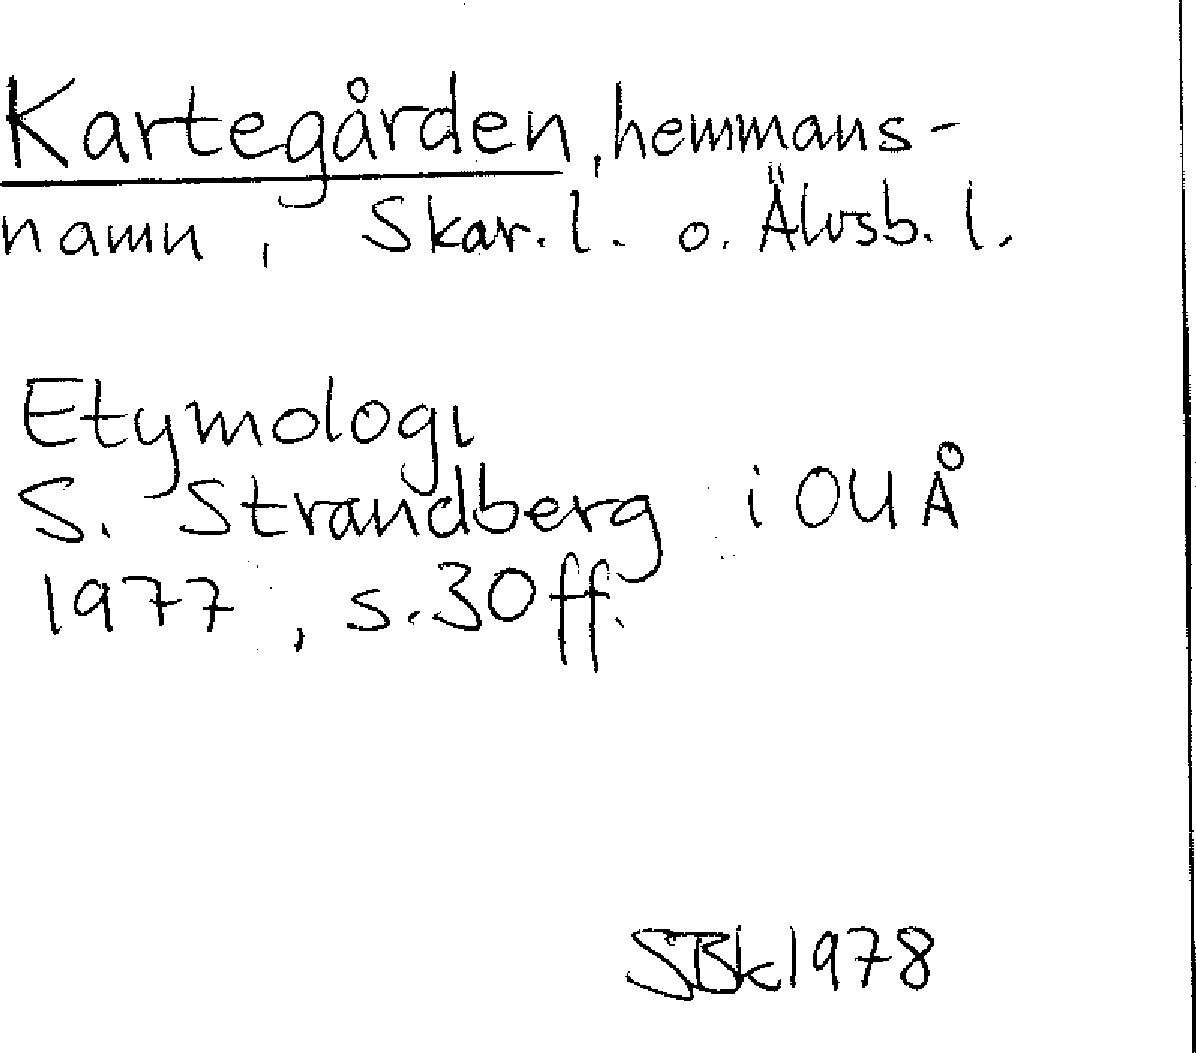 Kartegården, hemmans-
namn, Skar. l. o. Älvsb. l.
Etymologi
S. Strandberg i OUÅ
1977, s. 30 ff.
SBk 1978